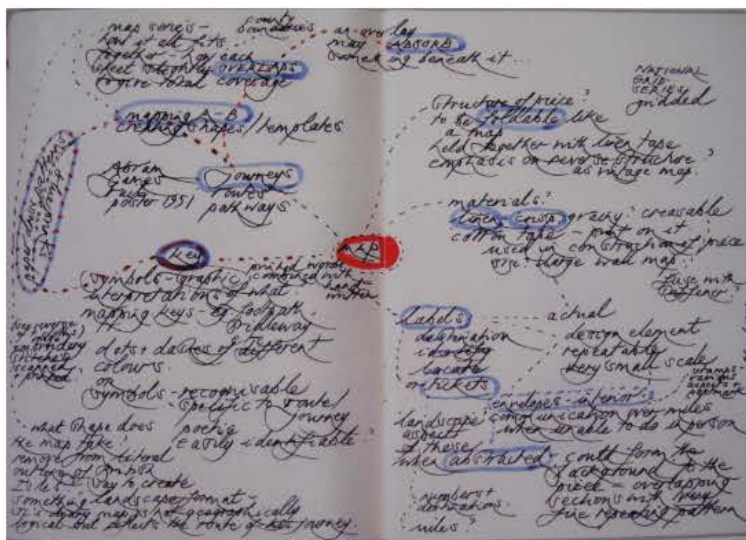 map series -
how it all fits
together / on each
sheet slightly OVERLAPS
to give total coverage
county
boundaries
an overlay
may ABSORB
something beneath it...
mapping A-B
creating shapes / templates
Abram
Games
poster 1951
Journeys
routes
pathways
Key
MAP
symbols - graphic
interpretations of what
mapping keys - eg footpath
bridleway
printed words
combined with
hand
written
dots + dashes of different
colours.
or
symbols - recognisable
specific to route/
journey
poetic
easily identifiable
embroidery
stitches
scanned
+ printed
what shape does
the map take?
remove from literal
outline of British
Isles - way to create
something landscape format -
map is not geographically
logical but reflects the route of journey.
NATIONAL
GRID
SERIES
gridded
structure of piece?
to be foldable like
a map
held together with linen tape
emphasis on reverse structure?
as vintage map.
materials?
linen crisp greeny? creasable
cotton tape - print on it
used in construction of piece
size: large wall map
fuse with
stiffener
labels
destination
identity
locate
or tickets
actual
design element
repeatable
very small scale
envelopes - interior?
communication over miles
when unable to do in person
landscape
aspects
of these
when abstracted - could form the
background to the
piece - overlapping
sections with very
fine repeating pattern
numbers +
destinations.
miles?